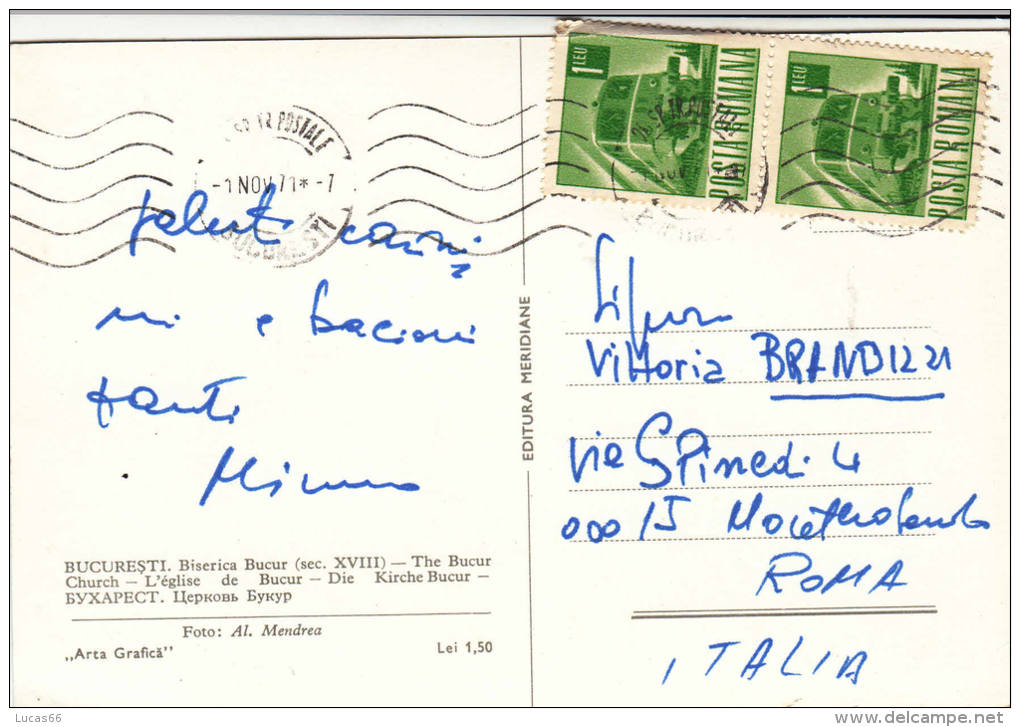 1 LEU
POSTA ROMANA
1 LEU
POSTA ROMANA
POSTALE
-1 NOV 71*-7
BUCUREȘTI
saluti carissi
mi e bacioni
tanti
Mimmo
EDITURA MERIDIANE
Vittoria BRANDIZZI
Via G Spinedi 4
00015
ROMA
ITALIA
BUCUREȘTI. Biserica Bucur (sec. XVIII) — The Bucur
Church — L'église de Bucur — Die Kirche Bucur —
БУХАРЕСТ. Церковь Букур
Foto: Al. Mendrea
„Arta Grafică”
Lei 1,50
Lucas66
www.delcampe.net